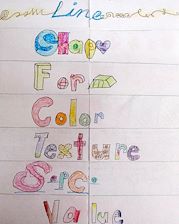 Line
Shape
Form
Color
Texture
Space
Value